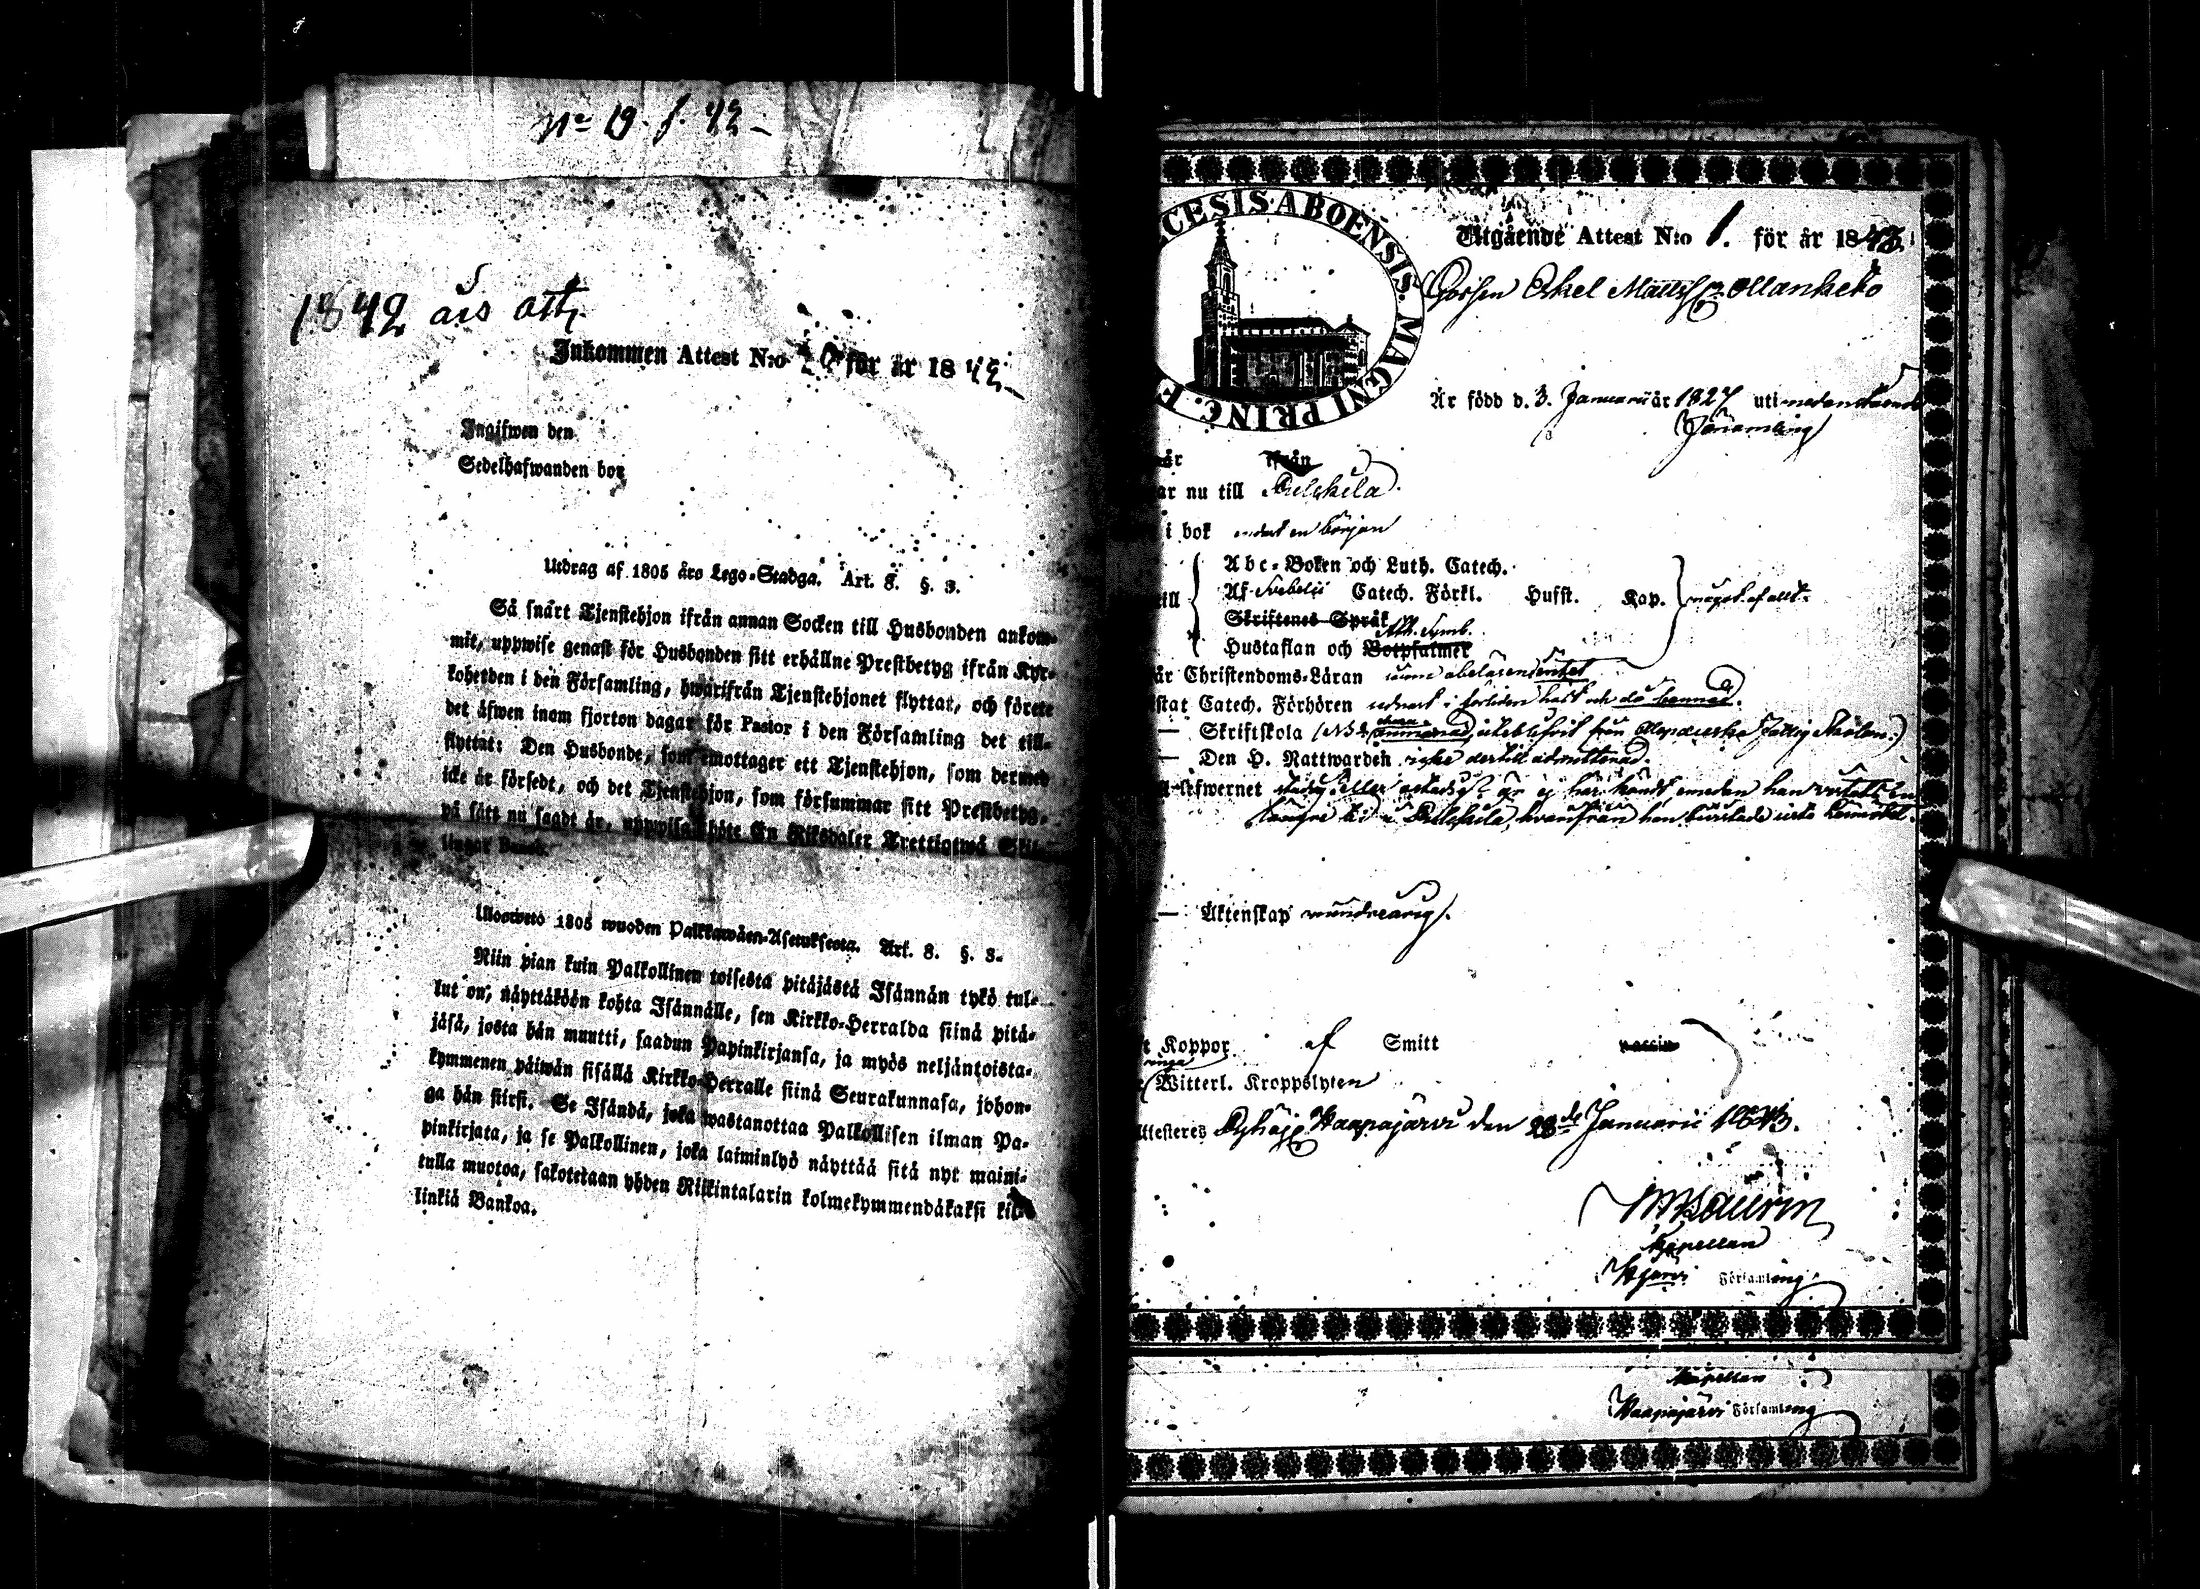 No 19. f. 42.
1842 års att.
Inkommen Attest N:o för år 1842.
Ingifwen den
Sedelhafwanden bor
Utdrag af 1805 års Lego-Stadga. Art. 8. §. 3.
Så snart Tjenstehjon ifrån annan Socken till Husbonden ankom-
mit, uppwise genast för Husbonden sitt erhållne Prestbetyg ifrån Kyr-
koherden i den Församling, hwarifrån Tjenstehjonet flyttat, och förete
det äfwen inom fjorton dagar för Pastor i den Församling det till-
flyttat: Den Husbonde, som emottager ett Tjenstehjon, som dermed
icke är försedt, och det Tjenstehjon, som försummar sitt Prestbetyg,
på sätt nu sagdt är, uppwisa, böte En Riksdaler Trettiotwå Skil-
lingar Banco.
Ulosweto 1805 wuoden Palkkawäen-Asetuksesta. Art. 8. §. 3.
Niin pian kuin Palkollinen toisesta pitäjästä Isännän tykö tul-
lut on, näyttäköön kohta Isännälle, sen Kirkko-Herralda siinä pitä-
jäsä, josta hän muutti, saadun Papinkirjansa, ja myös neljäntoista-
kymmenen päiwän sisällä Kirkko-Herralle siinä Seurakunnasa, johon-
ga hän siirsi. Se Isändä, joka wastanottaa Palkollisen ilman Pa-
pinkirjata, ja se Palkollinen, joka laiminlyö näyttää sitä nyt maini-
tulla muotoa, sakotetaan yhden Riikintalarin kolmekymmendäkaksi kil-
linkiä Bankoa.
CESIS ABOENSIS. MAGNI PRINC. F
Utgående Attest N:o 1. för år 1843.
Gossen Eskel Mattss. Ollanketo
Är född d. 3. Januarii år 1827 uti nedanstående
Församling
är ifrån
ar nu till Pulkkila.
i bok endast en början
Abc-Boken och Luth. Catech.
till Af Svebelii Catech. Förkl. Husst. Kap. något af allt.
Skriftenes Språk
Ath. Symb.
Hustaflan och Botpsalmer
är Christendoms-Läran
stat Catech. Förhören endast i
— Skriftskola
— Den H. Nattwarden icke dertill admitterad.
lefwernet stadig eller ostadig? är ej här kändt, emedan han vistats en
längre tid i Pulkkila, hvarifrån han
— Äktenskap minderårig.
t Koppor af Smitt
ringa
Witterl. Kroppslyten
Attesteres Pyhäj. Haapajärvi den 28de Januarii 1843.
Kapellan
Hjärvi Församling
Kapellan
Haapajärvi Församling